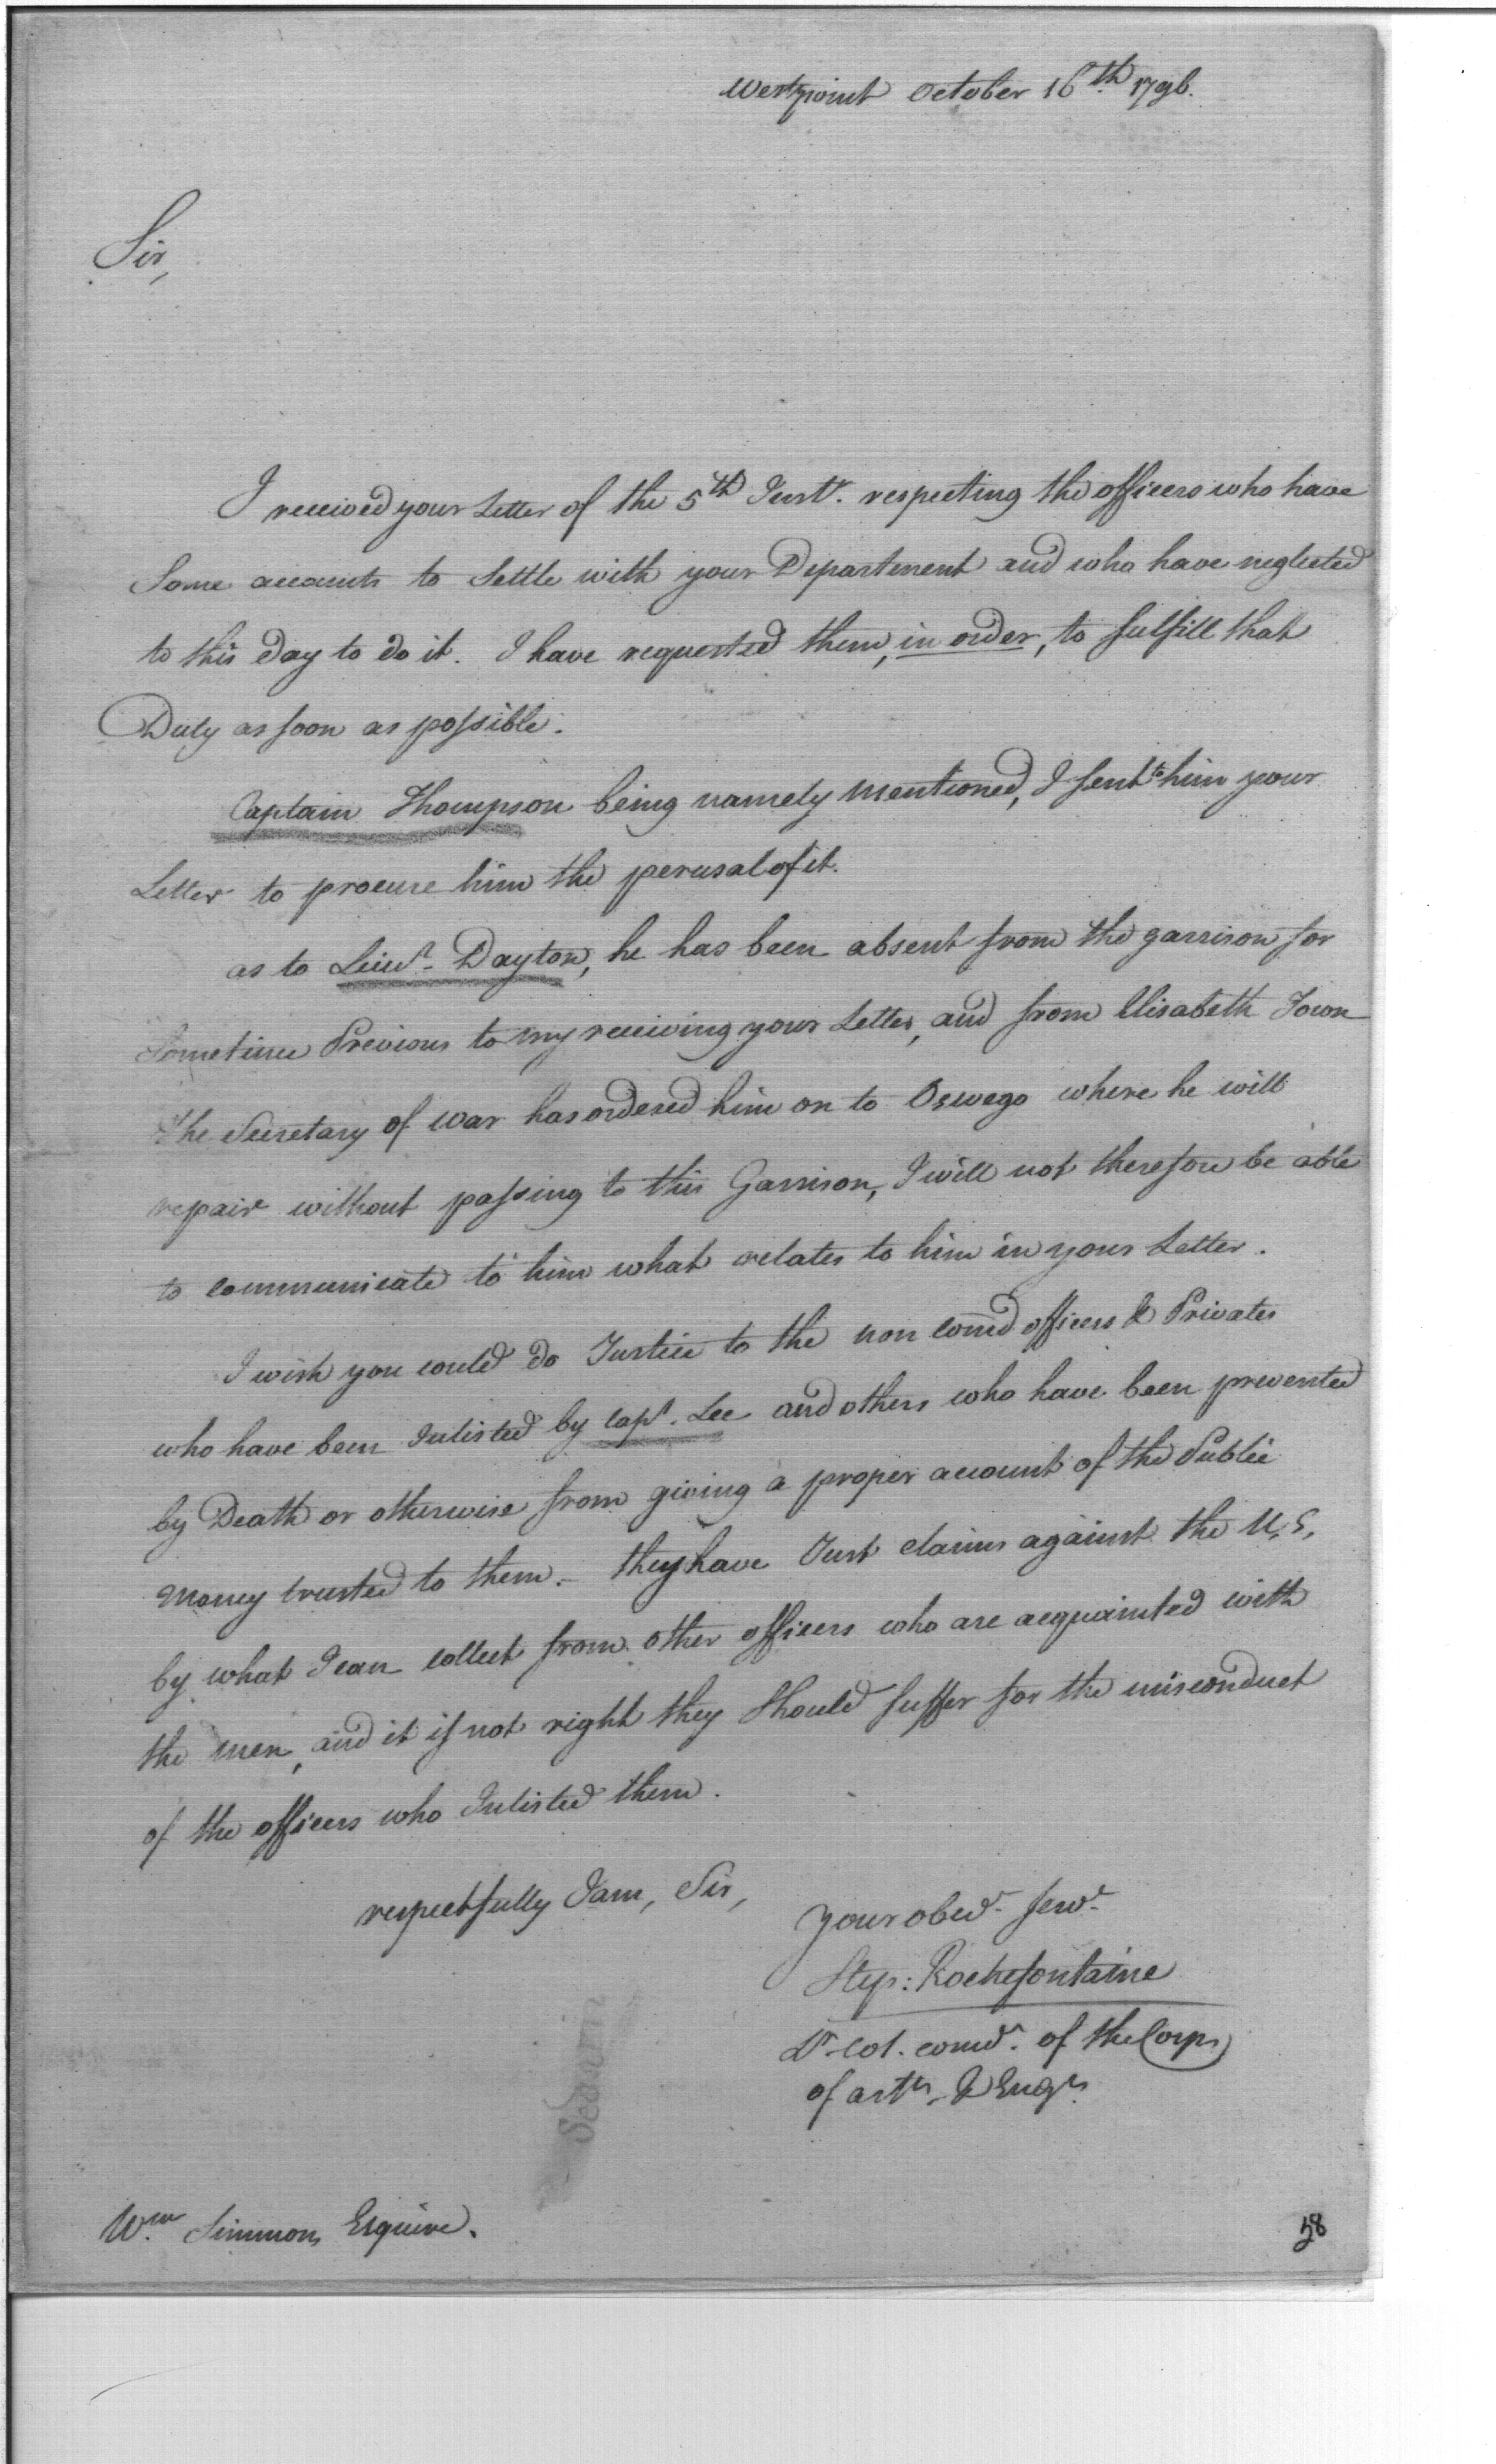 Westpoint October 16th. 1796.
Sir,
I received your Letter of the 5th Inst. respecting the officers who have
Some accounts to Settle with your Department and who have neglected
to this Day to do it. I have requested them, in order, to fulfill that
Duty as soon as possible.
Captain Thompson being namely mentioned, I sent to him your
Letter to procure him the perusal of it.
as to Lieut. Dayton, he has been absent from the garrison for
Sometime Previous to my receiving your Letter, and from Elisabeth Town
The Secretary of war has ordered him on to Oswego where he will
repair without passing to this Garrison, I will not therefore be able
to communicate to him what relates to him in your Letter.
I wish you could do Justice to the non comd officers & Privates
who have been Inlisted by Capt. Lee and others who have been prevented
by Death or otherwise from giving a proper account of the Public
Money trusted to them. - they have Just claims against the U.S.
by what I can collect from other officers who are acquainted with
the men, and it is not right they Should suffer for the misconduct
of the officers who Inlisted them.
respectfully I am, Sir,
Your obed. serv.
Step: Rochefontaine
Lt. Col. comd. of the Corps
of arts. & Engrs.
Wm. Simmons Esquire.
58